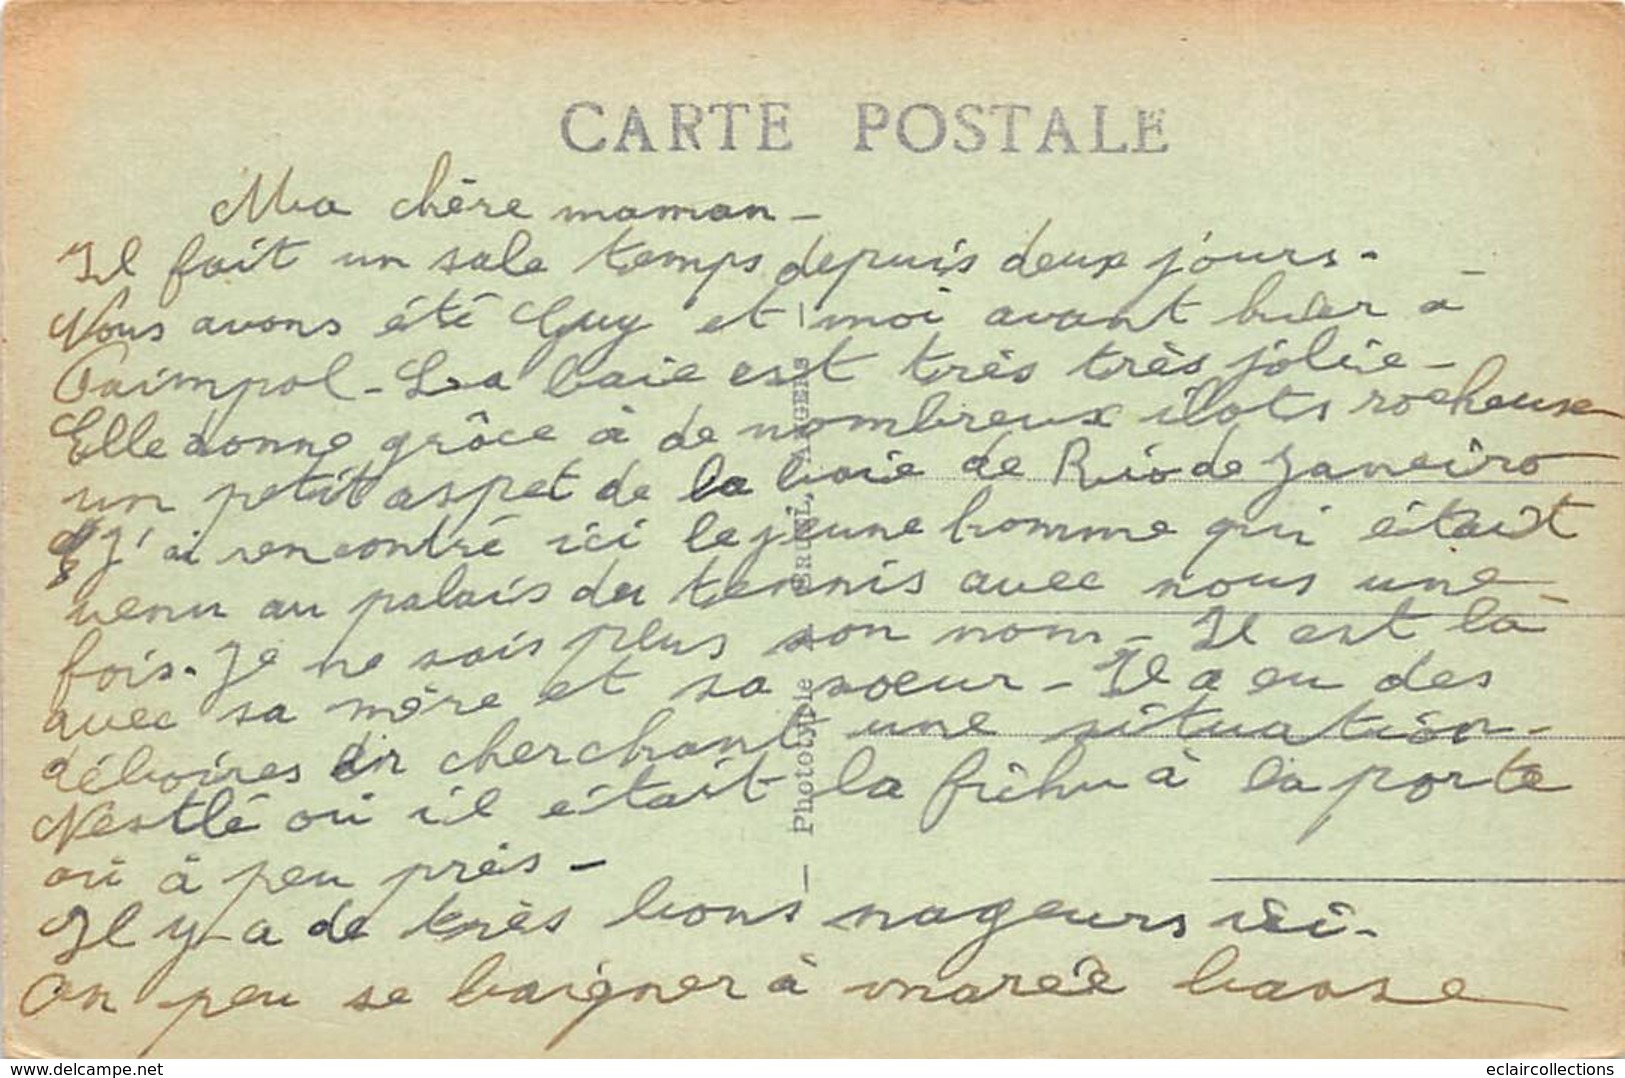 CARTE POSTALE
Ma chère maman -
Il fait un sale temps depuis deux jours. -
Nous avons été Guy et moi avant hier à
Paimpol - La baie est très très jolie -
Elle donne grâce à de nombreux ilots rocheux
un petit aspet de la baie de Rio de Janeiro
J'ai rencontré ici le jeune homme qui était
venu au palais du tennis avec nous une
fois. Je ne sais plus son nom - Il est là
avec sa mère et sa soeur - Il a eu des
déboires en cherchant une situation -
Nestlé où il était la fichu à la porte
ou à peu près -
Il y a de très bons nageurs ici -
On peu se baigner à marée basse
Phototypie A. BRUEL, ANGERS
www.delcampe.net
eclaircollections